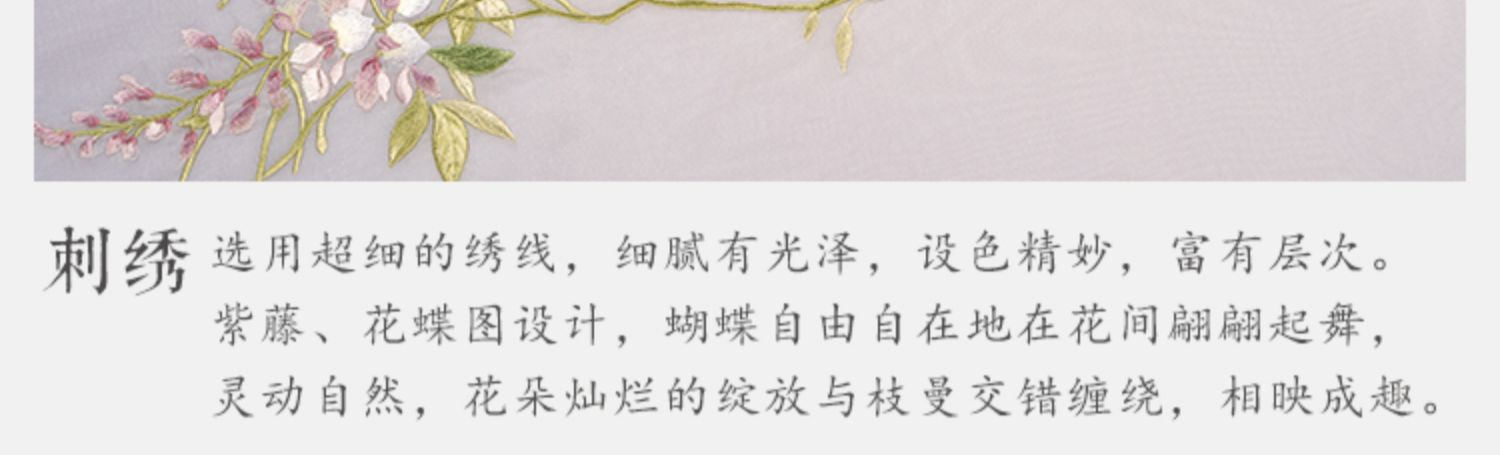 刺绣 选用超细的绣线，细腻有光泽，设色精妙，富有层次。
紫藤、花蝶图设计，蝴蝶自由自在地在花间翩翩起舞，
灵动自然，花朵灿烂的绽放与枝曼交错缠绕，相映成趣。